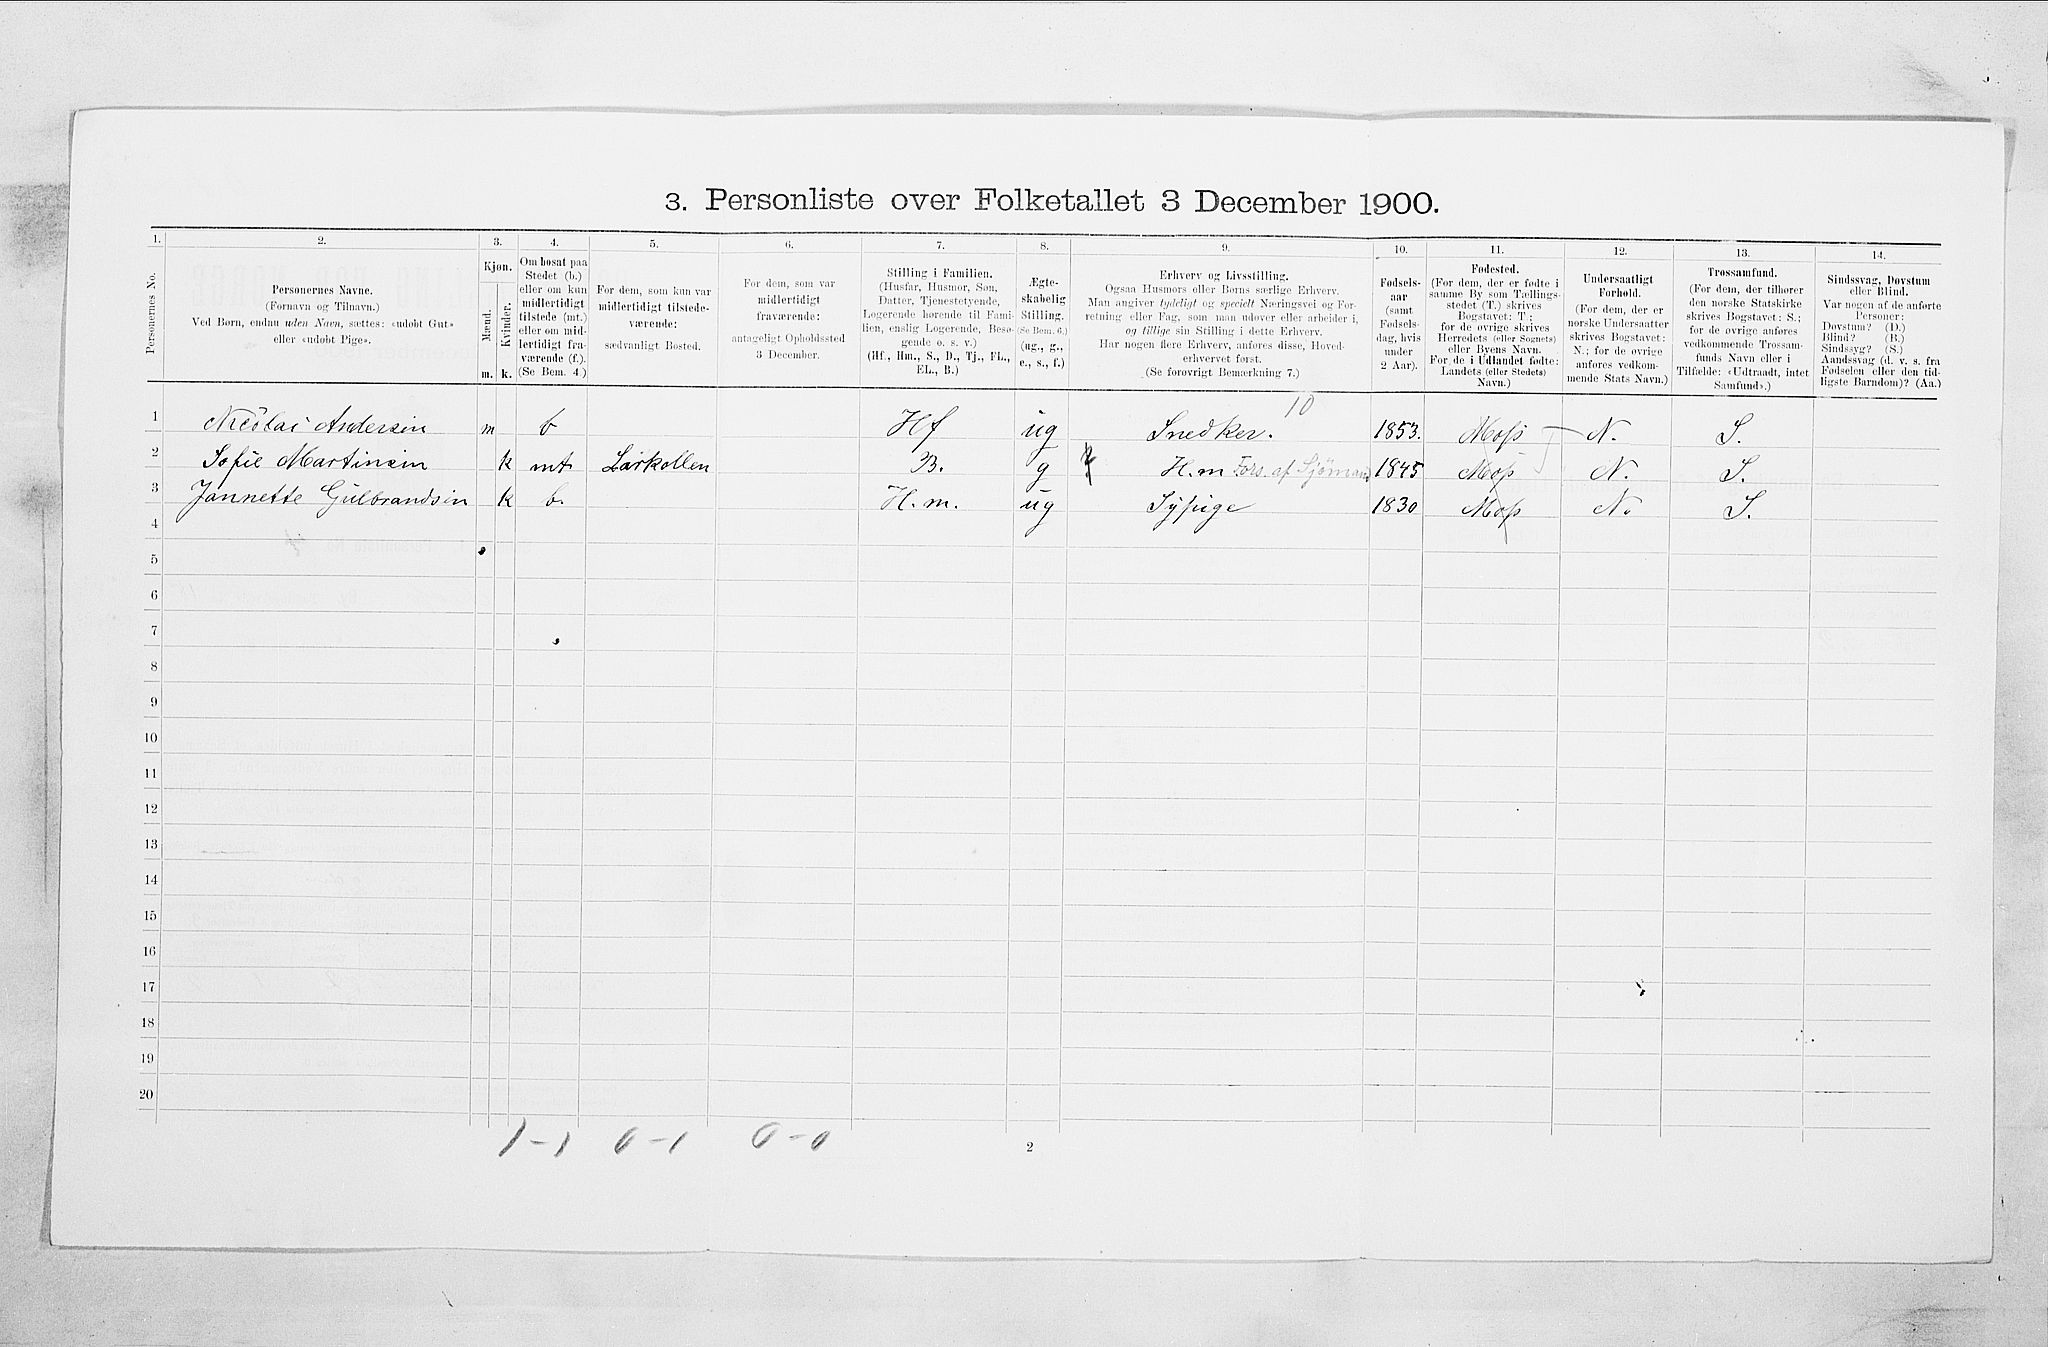 3. Personliste over Folketallet 3 December 1900.
1. 2. 3. 4. 5. 6. 7. 8. 9. 10. 11. 12. 13. 14.
Personernes No.
Personernes Navne.
(Fornavn og Tilnavn.)
Ved Børn, endnu uden Navn, sættes: «udøbt Gut»
eller «udøbt Pige».
Kjøn.
Mænd.
Kvinder.
m. k.
Om bosat paa
Stedet (b.)
eller om kun
midlertidigt
tilstede (mt.)
eller om mid-
lertidigt fra-
værende (f.).
(Se Bem. 4.)
For dem, som kun var
midlertidigt tilstede-
værende:
sædvanligt Bosted.
For dem, som var
midlertidigt
fraværende:
antageligt Opholdssted
3 December.
Stilling i Familien.
(Husfar, Husmor, Søn,
Datter, Tjenestetyende,
Logerende hørende til Fami-
lien, enslig Logerende, Besø-
gende o. s. v.)
(Hf., Hm., S., D., Tj., FL.,
EL., B.)
Ægte-
skabelig
Stilling.
(Se Bem. 6.)
(ug., g.,
e., s., f.)
Erhverv og Livsstilling.
Ogsaa Husmors eller Børns særlige Erhverv.
Man angiver tydeligt og specielt Næringsvei og For-
retning eller Fag, som man udøver eller arbeider i,
og tillige sin Stilling i dette Erhverv.
Har nogen flere Erhverv, anføres disse, Hoved-
erhvervet først.
(Se forøvrigt Bemærkning 7.)
Fødsels-
aar
(samt
Fødsels-
dag, hvis
under
2 Aar).
Fødested.
(For dem, der er fødte i
samme By som Tællings-
stedet (T.) skrives
Bogstavet: T.;
for de øvrige skrives
Herredets (eller Sognets)
eller Byens Navn.
For de i Udlandet fødte:
Landets (eller Stedets)
Navn.)
Undersaatligt
Forhold.
(For dem, der er
norske Undersaatter
skrives Bogstavet:
N.; for de øvrige
anføres vedkom-
mende Stats Navn.)
Trossamfund.
(For dem, der tilhører
den norske Statskirke
skrives Bogstavet: S.;
for de øvrige anføres
vedkommende Trossam-
funds Navn eller i
Tilfælde: «Udtraadt, intet
Samfund».)
Sindssvag, Døvstum
eller Blind.
Var nogen af de anførte
Personer:
Døvstum? (D.)
Blind? (B.)
Sindssyg? (S.)
Aandssvag (d. v. s. fra
Fødselen eller den tid-
ligste Barndom)? (Aa.)
10
1 Nicolai Andersen m b Hf ug Snedker. 1853. Moss N. S.
2 Sofie Martinsen k mt Larkollen B. g H.m Fors. af Sjømand 1845 Moss N. S.
3 Jannette Gulbrandsen k b. H.m. ug Sypige 1830 Moss N. S.
4
5
6
7
8
9
10
11
12
13
14
15
16
17
18
19
20
1-1 0-1 0-0
2